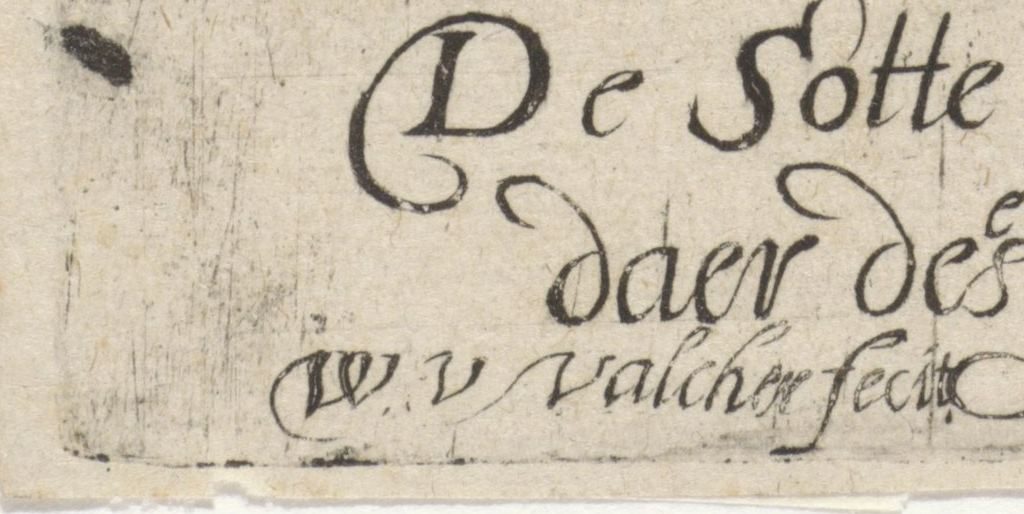 De Sotte
daer des
w. v valcher fecit